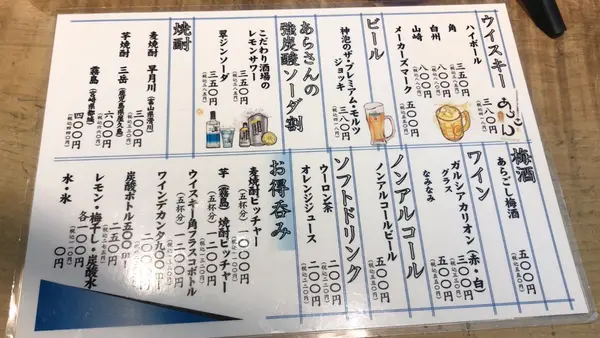 ウイスキー
ハイボール 三八〇円
角 三五〇円
白州 八〇〇円
山崎 八〇〇円
メーカーズマーク 五〇〇円
ビール
神泡のザ・プレミアム・モルツ
ジョッキ 三八〇円
あらさんの
強炭酸ソーダ割
こだわり酒場の
レモンサワー 三五〇円
翠ジンソーダ 三五〇円
焼酎
麦焼酎 早月川 (富山県滑川) 三〇〇円
芋焼酎 三岳 (鹿児島県屋久島) 六〇〇円
霧島 (宮崎県都城) 四〇〇円
梅酒
あらごし梅酒 五〇〇円
ワイン
ガルシアカリオン(赤・白)
グラス 三〇〇円
なみなみ 五〇〇円
ノンアルコール
ノンアルコールビール 三五〇円
ソフトドリンク
ウーロン茶 二〇〇円
オレンジジュース 二〇〇円
お得呑み
麦焼酎ピッチャー
(五杯分) 一〇〇〇円
芋(霧島)焼酎ピッチャー
(五杯分) 一二〇〇円
ウイスキー角フラスコボトル
(五杯分) 一二〇〇円
ワインデカンタ 九〇〇円
炭酸ボトル五〇〇 二五〇円
レモン・梅干し・炭酸水
各一〇〇円
水・氷 〇円